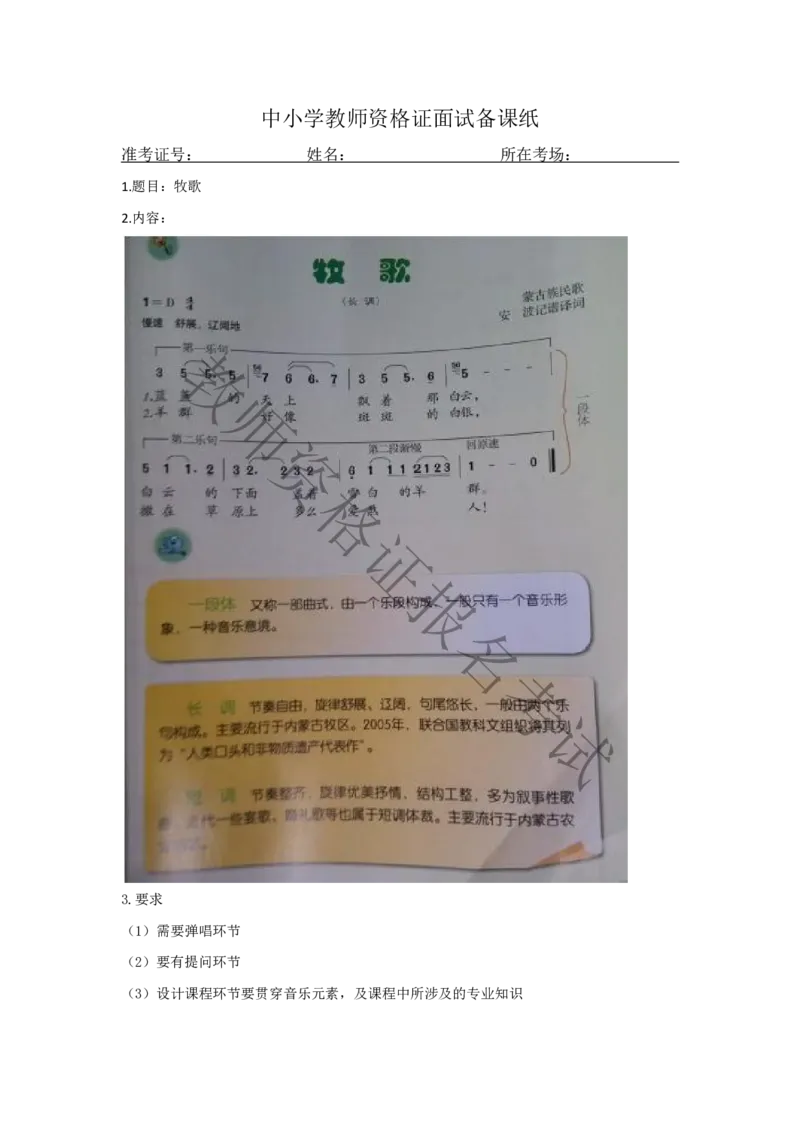 中小学教师资格证面试备课纸
准考证号： 姓名： 所在考场：
1.题目：牧歌
2.内容：
牧 歌
1=D 4/4 （长 调） 蒙古族民歌
慢速 舒展、辽阔地 安 波记谱译词
第一乐句
3 5 5. 5 | 7 6 6. 7 | 3 5 5. 6 | 5 - - -
1.蓝 蓝 的 天 上 飘 着 那 白云，
2.羊 群 好 像 斑 斑 的 白银，
一段体
第二乐句 第二段渐慢 回原速
5 1 1. 2 | 3 2. 2 3 2 | 6 1 1 1 2 1 2 3 | 1 - - 0
白 云 的 下面 着 雪 白 的羊 群。
撒 在 草 原上 多么 爱 人！
一段体 又称一部曲式，由一个乐段构成，一般只有一个音乐形
象，一种音乐意境。
长 调 节奏自由，旋律舒展、辽阔，句尾悠长，一般由两个乐
句构成。主要流行于内蒙古牧区。2005年，联合国教科文组织将其列
为“人类口头和非物质遗产代表作”。
短 调 节奏整齐，旋律优美抒情，结构工整，多为叙事性歌
近代一些宴歌、婚礼歌等也属于短调体裁。主要流行于内蒙古农
教师资格证报名考试
3.要求
（1）需要弹唱环节
（2）要有提问环节
（3）设计课程环节要贯穿音乐元素，及课程中所涉及的专业知识